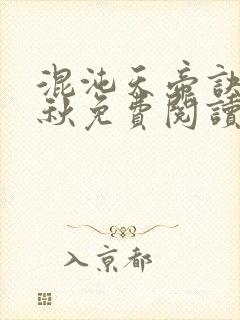 混沌天帝訣
秋免費閱讀
入京都